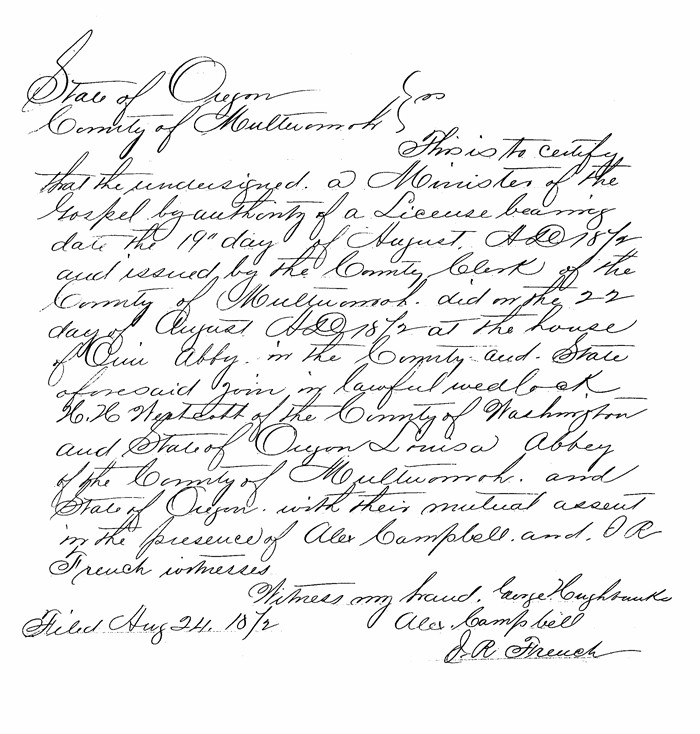 State of Oregon } ss
County of Multnomah
This is to certify
that the undersigned. a Minister of the
Gospel by authority of a License bearing
date the 19" day of August, AD 1872
and issued by the County Clerk of the
County of Multnomah. did on the 22
day of August AD 1872 at the house
of Abby. in the County and. State
aforesaid join in lawful wedlock
H. H Westcott of the County of Washington
and State of Oregon Louisa Abbey
of the County of Multnomah. and
State of Oregon. with their mutual assent
in the presence of Alex Campbell. and. J R
French witnesses
Witness my hand. George Hughbanks
Filed Aug 24, 1872
Alex. Campbell
J. R. French